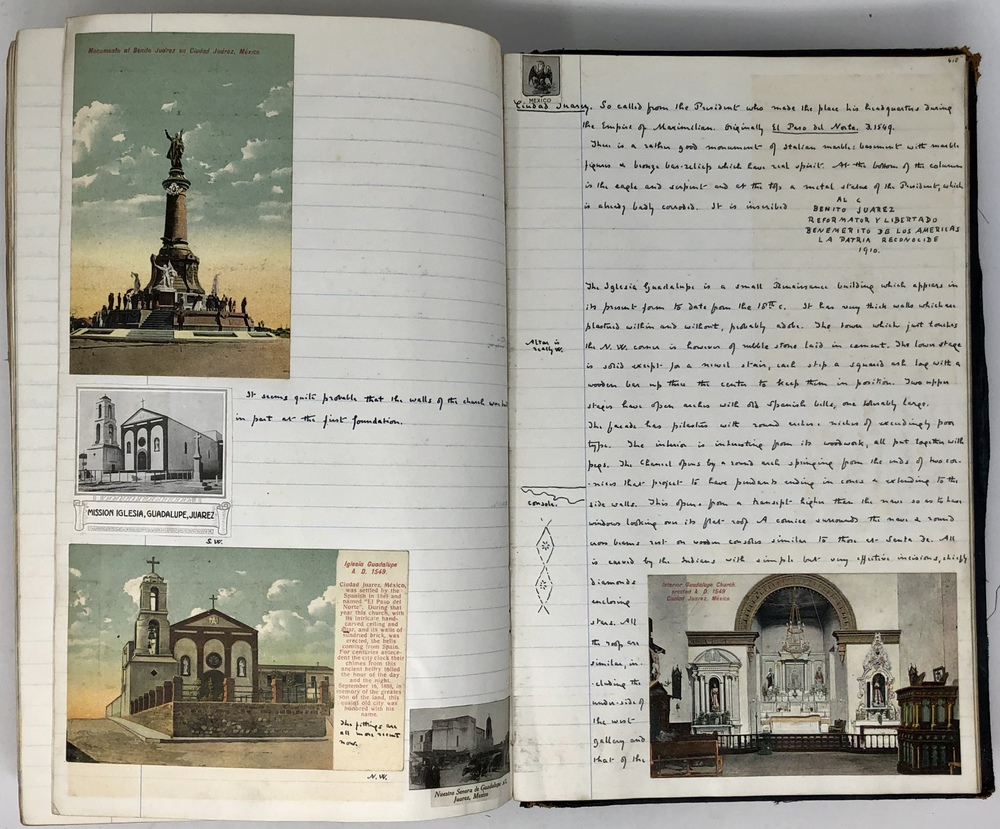 Monumento al Benito Juárez en Ciudad Juárez, México
It seems quite probable that the walls of the church
in part at the first foundation.
MISSION IGLESIA, GUADALUPE, JUAREZ
S.W.
Iglesia Guadalupe
A. D. 1549.
Ciudad Juarez, México,
was settled by the
Spanish in 1549 and
named "El Paso del
Norte". During that
year this church, with
its intricate hand-
carved ceiling and
and its walls of
sundried brick, was
erected, the bells
coming from Spain.
For centuries antece-
dent the city clock their
chimes from this
ancient belfry tolled
the hour of the day
and the night.
September 16, 1888, in
memory of the greates
son of the land, this
quaint old city was
honored with his
name.
The fittings are
all more recent
now.
N.W.
Nuestra Senora de Guadalupe
Juarez, Mexico
MEXICO
Ciudad Juarez. So called from the President who made the place his headquarters during
the Empire of Maximilian. Originally El Paso del Norte. F. 1549.
There is a rather good monument of Italian marble: basement with marble
figures & bronze bas-reliefs which have real spirit. At the bottom of the column
is the eagle and serpent and at the top a metal statue of the President, which
is already badly corroded. It is inscribed
AL C
BENITO JUAREZ
REFORMATOR Y LIBERTADO
BENEMERITO DE LOS AMERICAS
LA PATRIA RECONOCIDE
1910.
The Iglesia Guadalupe is a small Renaissance building which appears in
its present form to date from the 18th c. It has very thick walls which are
plastered within and without, probably adobe. The tower which just touches
Altar is
really W.
the N.W. corner is however of rubble stone laid in cement. The lower stage
is solid except for a newel stair, each step a squared ash log with a
wooden bar up thro the center to keep them in position. Two upper
stages have open arches with old Spanish bells, one tolerably large.
The facade has pilasters with round arches & niches of exceedingly poor
type. The interior is interesting from its woodwork, all put together with
pegs. The chancel opens by a round arch springing from the ends of two cor-
nices that project to have pendants ending in cones & extending to the
console.
side walls. This opens from a transept higher than the nave so as to have
windows looking on its flat roof. A cornice surrounds the nave & round
cross beams rest on wooden consoles similar to those at Santa Fe. All
is carved by the Indians with simple but very effective incisions, chiefly
diamonds
enclosing
stars. All
the roofs are
similar, in-
cluding the
under-side of
the west
gallery and
that of the
Interior Guadalupe Church.
erected A. D. 1549
Ciudad Juarez, México.